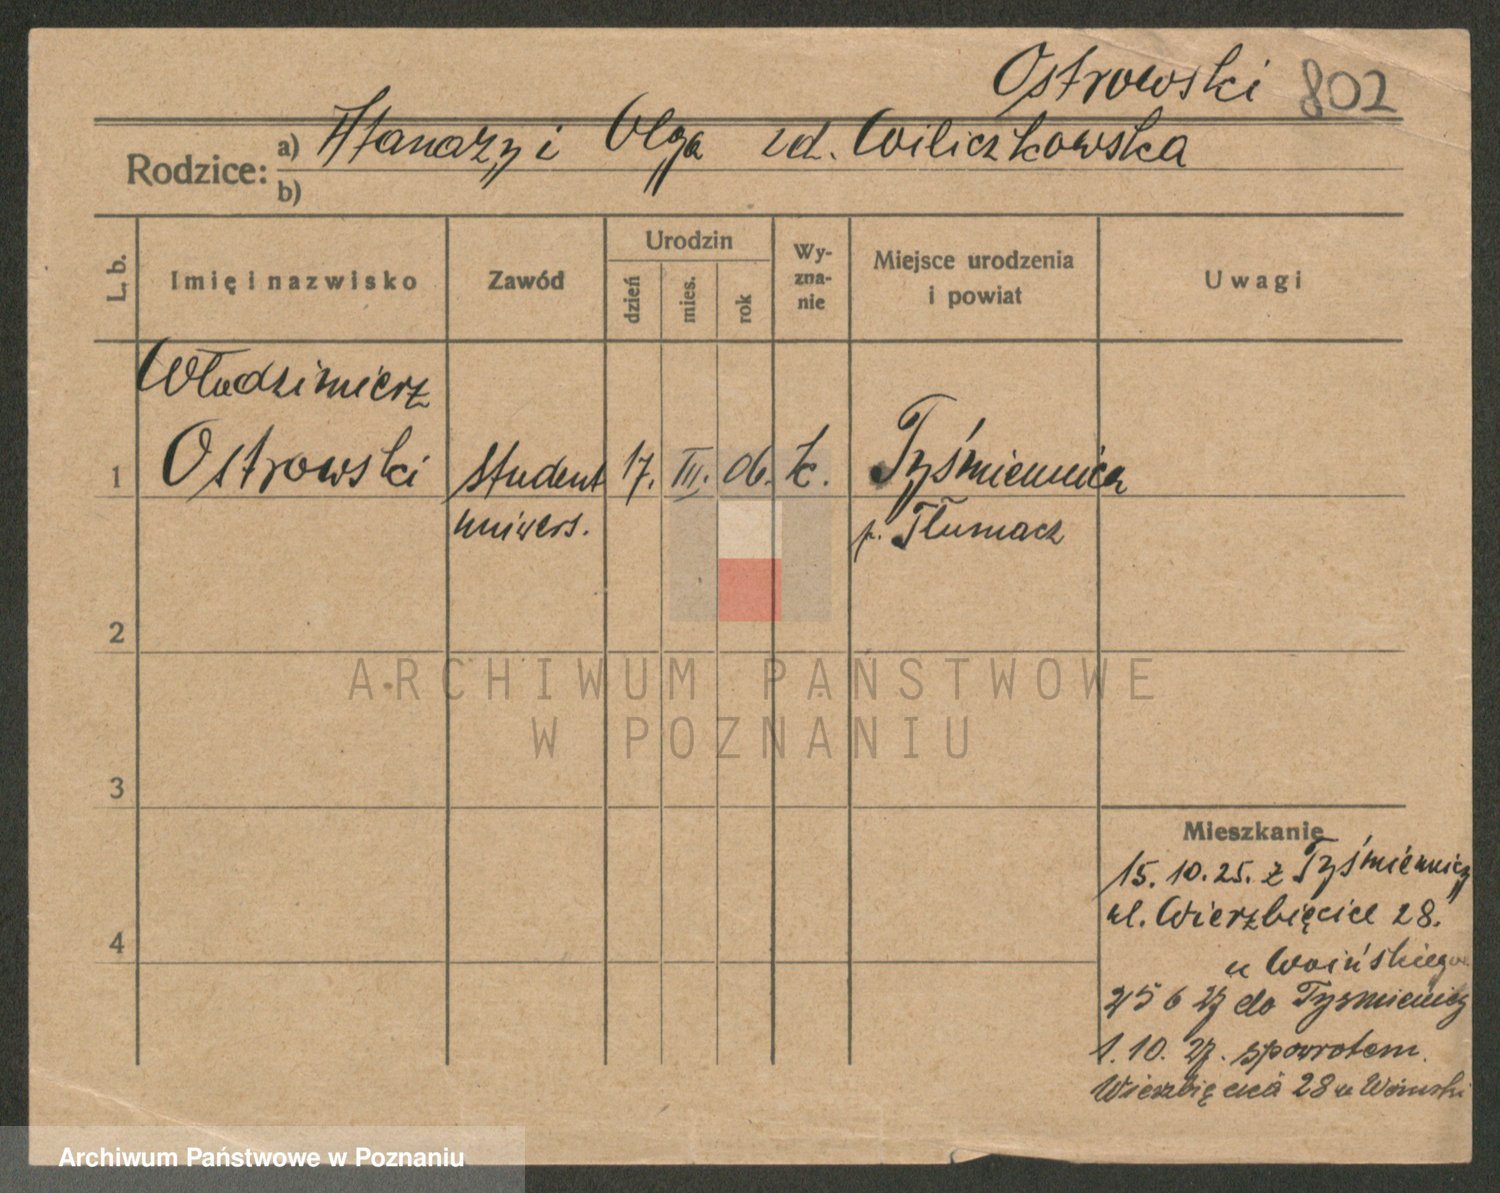 Ostrowski 802
Rodzice: a) Atanazy i Olga zd. Wiliczkowska
b)
L. b.
Imię i nazwisko
Zawód
Urodzin
dzień
mies.
rok
Wy-
zna-
nie
Miejsce urodzenia
i powiat
Uwagi
Włodzimierz
1 Ostrowski student 17. III. 06. k. Tyśmienica
univers. p. Tłumacz
2
3
4
Mieszkanie
15. 10. 25. z Tyśmienicy
ul. Wierzbięcice 28.
u Woińskiego
25 6 27 do Tyśmienicy
1. 10. 27. spowrotem.
28 u Woinski
ARCHIWUM PAŃSTWOWE
W POZNANIU
Archiwum Państwowe w Poznaniu